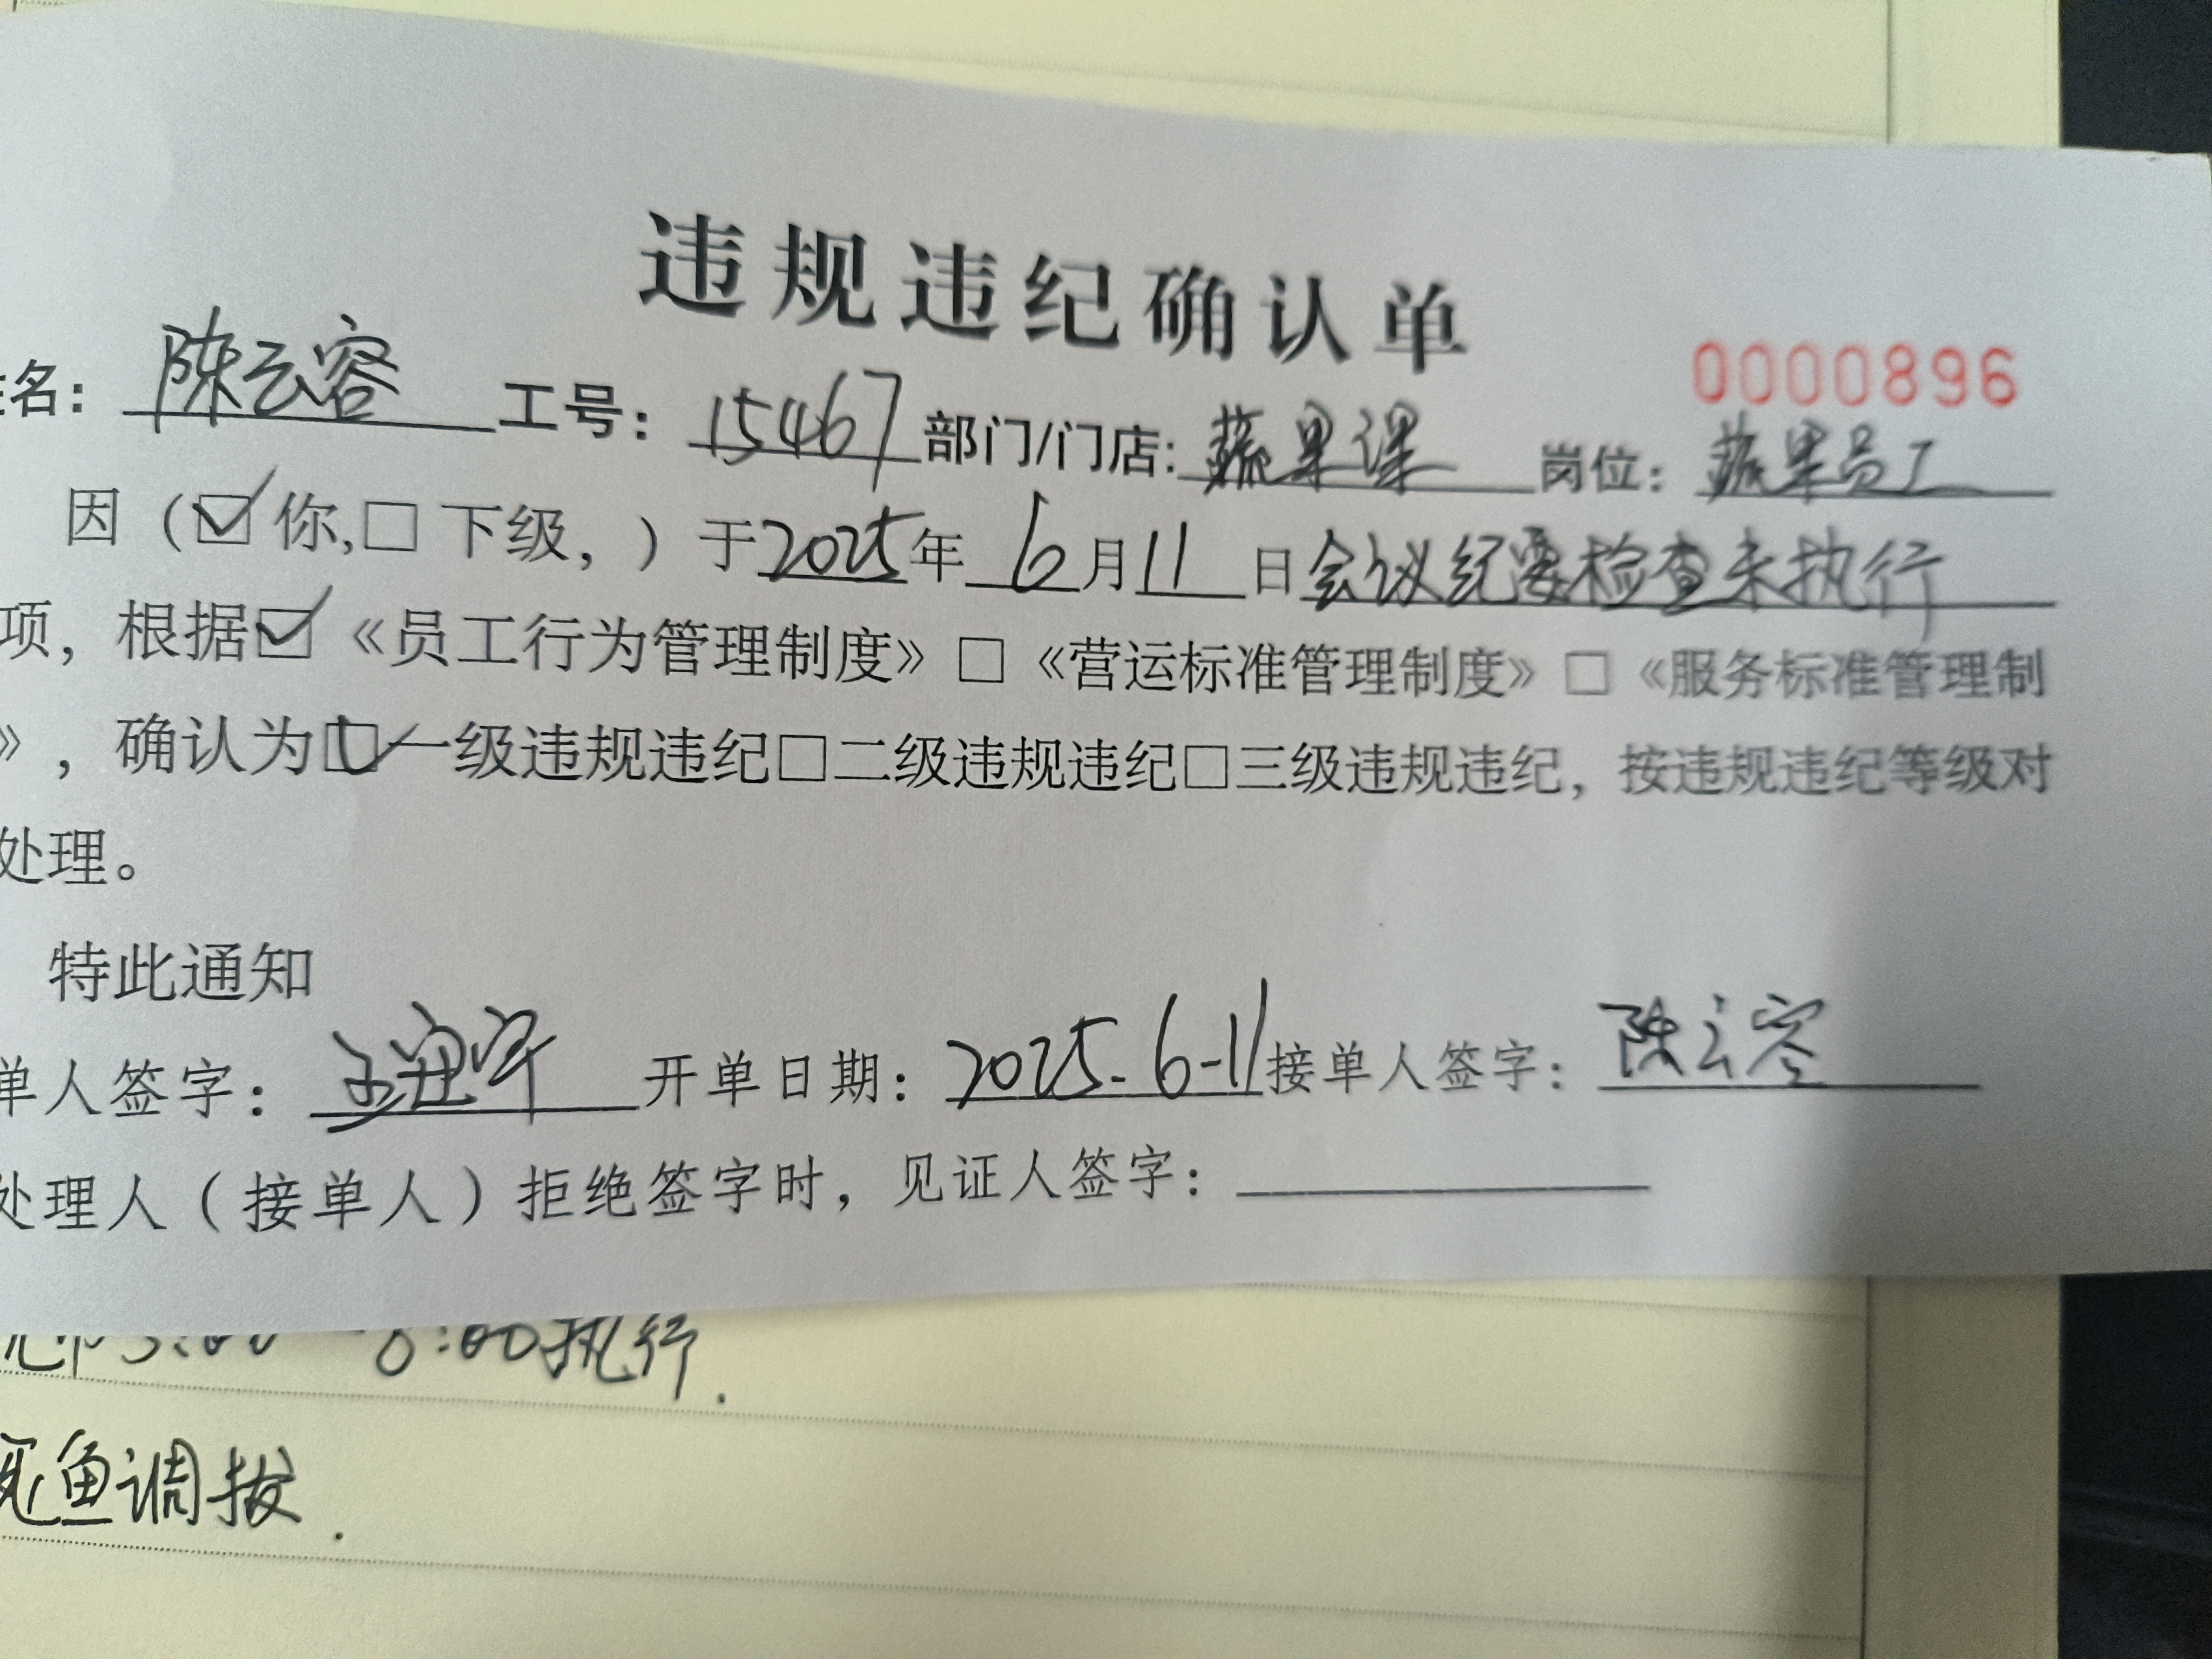 违规违纪确认单
0000896
名：陈云容 工号：15467 部门/门店：蔬果课 岗位：蔬果员工
因（☑你,□下级，）于2025年6月11日会议纪要检查未执行
项，根据☑《员工行为管理制度》□《营运标准管理制度》□《服务标准管理制
》，确认为☑一级违规违纪□二级违规违纪□三级违规违纪，按违规违纪等级对
处理。
特此通知
单人签字： 开单日期：2025.6-11 接单人签字：陈云容
处理人（接单人）拒绝签字时，见证人签字：
8:00执行.
死鱼调拔.